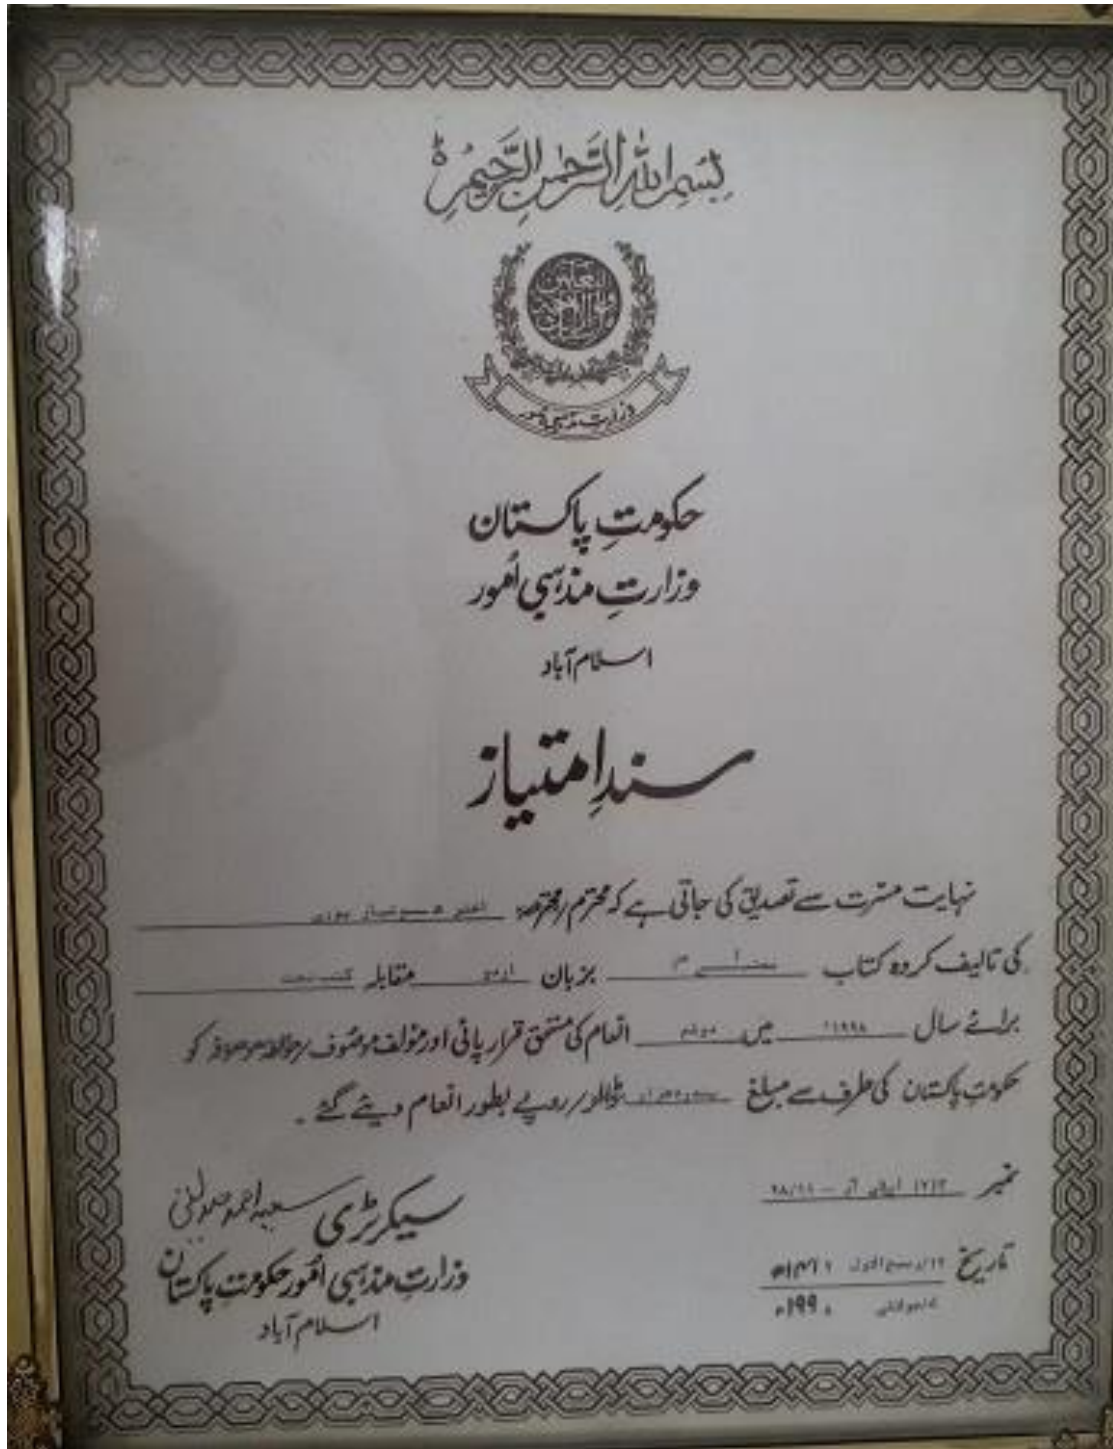 بِسْمِ اللهِ الرَّحْمٰنِ الرَّحِيْمِ
وزارت مذہبی امور
حکومتِ پاکستان
وزارتِ مذہبی اُمور
اسلام آباد
سندِ امتیاز
نہایت مسرت سے تصدیق کی جاتی ہے کہ محترم/محترمہ
کی تالیف کردہ کتاب بزبان اردو مقابلہ کتب نعت
برائے سال ۱۹۹۸ میں انعام کی مستحق قرار پائی اور مؤلف موصوف/مؤلفہ موصوفہ کو
حکومتِ پاکستان کی طرف سے مبلغ روپے بطور انعام دیئے گئے۔
نمبر
تاریخ ربیع الاول
جولائی
سیکرٹری
وزارتِ مذہبی اُمور حکومتِ پاکستان
اسلام آباد